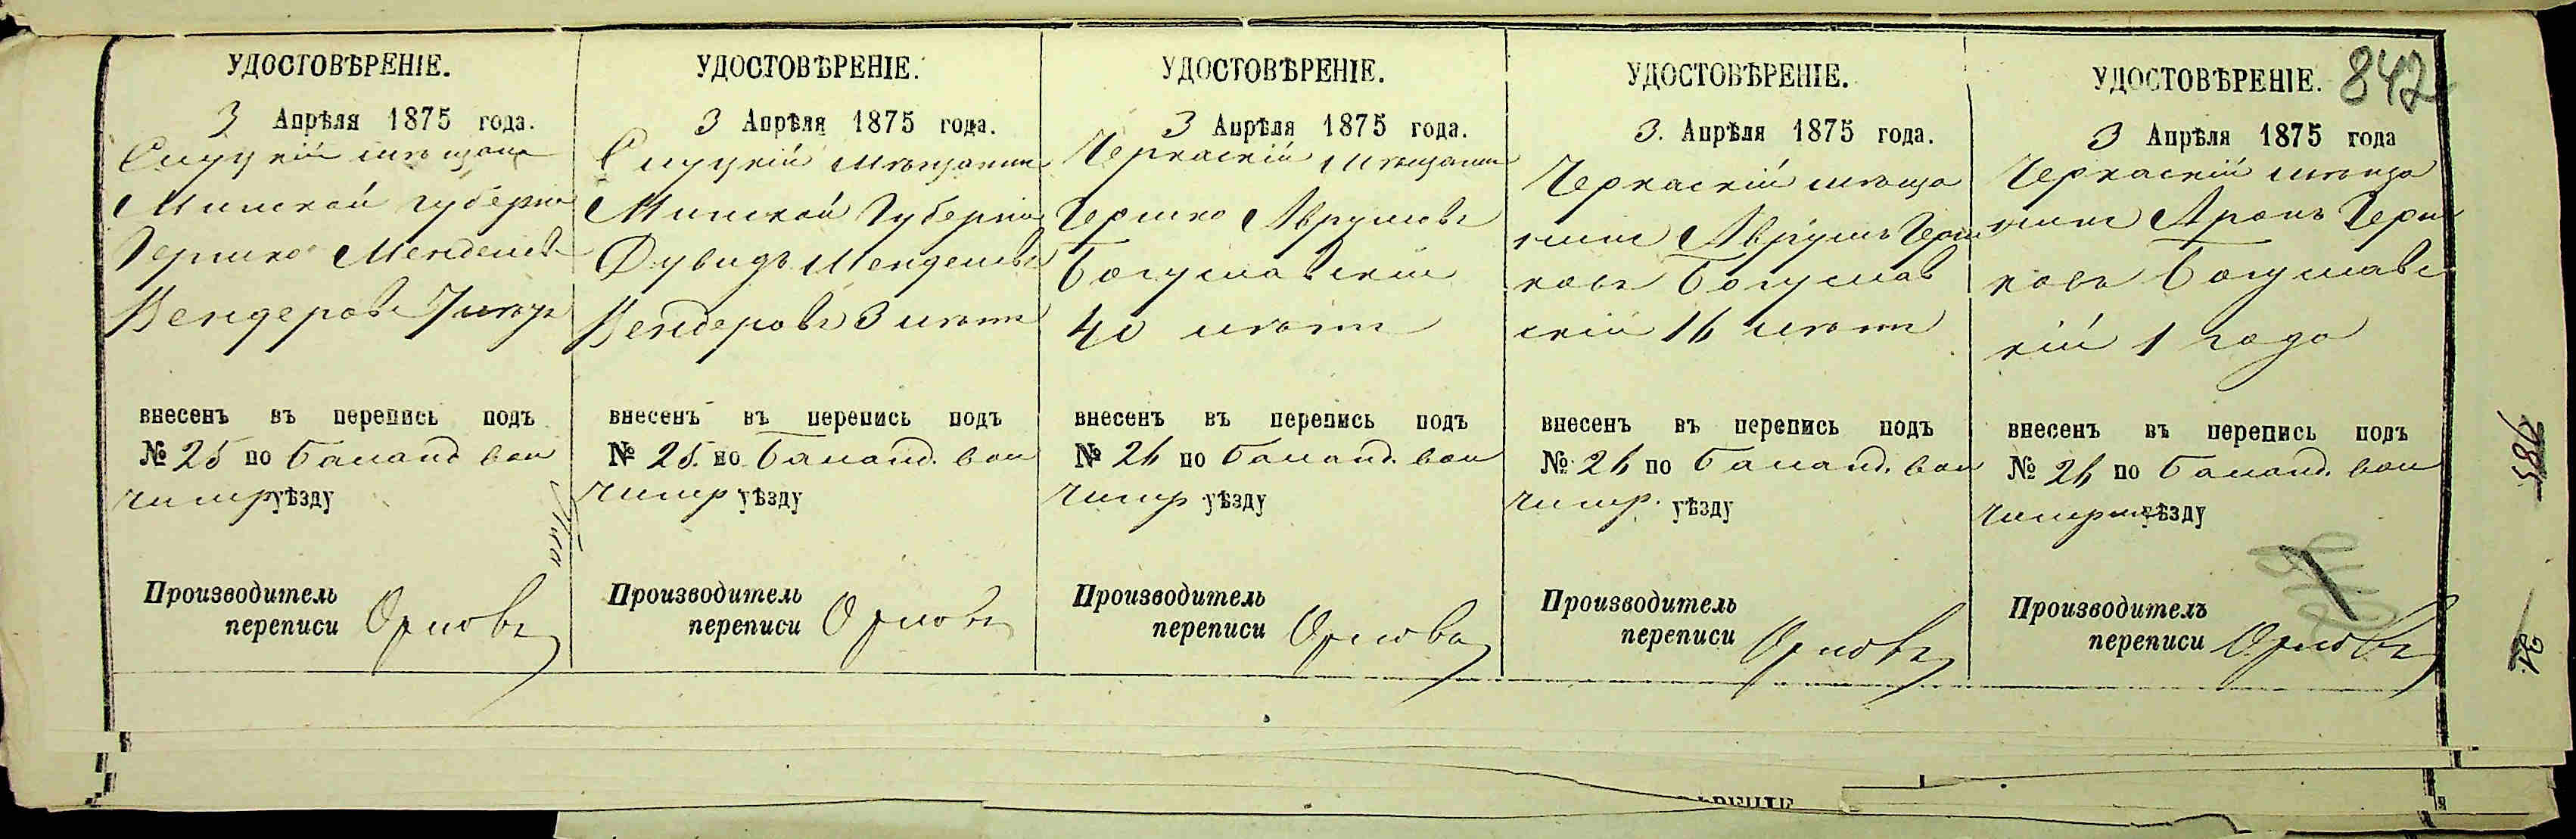 842
УДОСТОВѢРЕНІЕ.
3 Апрѣля 1875 года.
Слуцкій мѣщанин
Минской губерніи
Гершко Менделевъ
Вендеровъ 7 лѣтъ
внесенъ въ перепись подъ
№ 25 по Баланд. вол
Чигир уѣзду
Производитель
переписи Орловъ
УДОСТОВѢРЕНІЕ.
3 Апрѣля 1875 года.
Слуцкій мѣщанинъ
Минской Губерніи
Дувидъ Менделевъ
Вендеровъ 3 лѣтъ
внесенъ въ перепись подъ
№ 25. по Баланд. вол
Чигир уѣзду
Производитель
переписи Орловъ
УДОСТОВѢРЕНІЕ.
3 Апрѣля 1875 года.
Черкаскій мѣщанинъ
Гершко Аврумовъ
Богуславскій
40 лѣтъ
внесенъ въ перепись подъ
№ 26 по Баланд. вол
Чигир уѣзду
Производитель
переписи Орловъ
УДОСТОВѢРЕНІЕ.
3. Апрѣля 1875 года.
Черкаскій мѣща
нинъ Аврумъ Герш
ковъ Богуслав
скій 16 лѣтъ
внесенъ въ перепись подъ
№ 26 по Баланд. вол
Чигир. уѣзду
Производитель
переписи Орловъ
УДОСТОВѢРЕНІЕ.
3 Апрѣля 1875 года
Черкаскій мѣща
нинъ Аронъ Герш
ковъ Богуславс
кій 1 года
внесенъ въ перепись подъ
№ 26 по Баланд. вол
Чигирин уѣзду
Производитель
переписи Орловъ